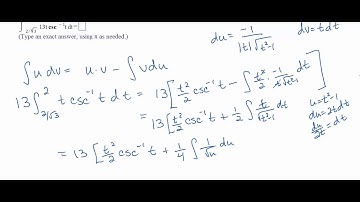 2/√3 13t csc⁻¹ t dt =
(Type an exact answer, using π as needed.)
du = -1 / |t|√t²-1
dv = t dt
∫ u dv = u · v - ∫ v du
13 ∫ 2/√3 2 t csc⁻¹ t dt = 13 [ t²/2 csc⁻¹ t - ∫ t²/2 · -1/t√t²-1 dt ]
= 13 [ t²/2 csc⁻¹ t + 1/2 ∫ t/√t²-1 dt
u = t²-1
du = 2t dt
du/2t = dt
= 13 [ t²/2 csc⁻¹ t + 1/4 ∫ 1/√u du